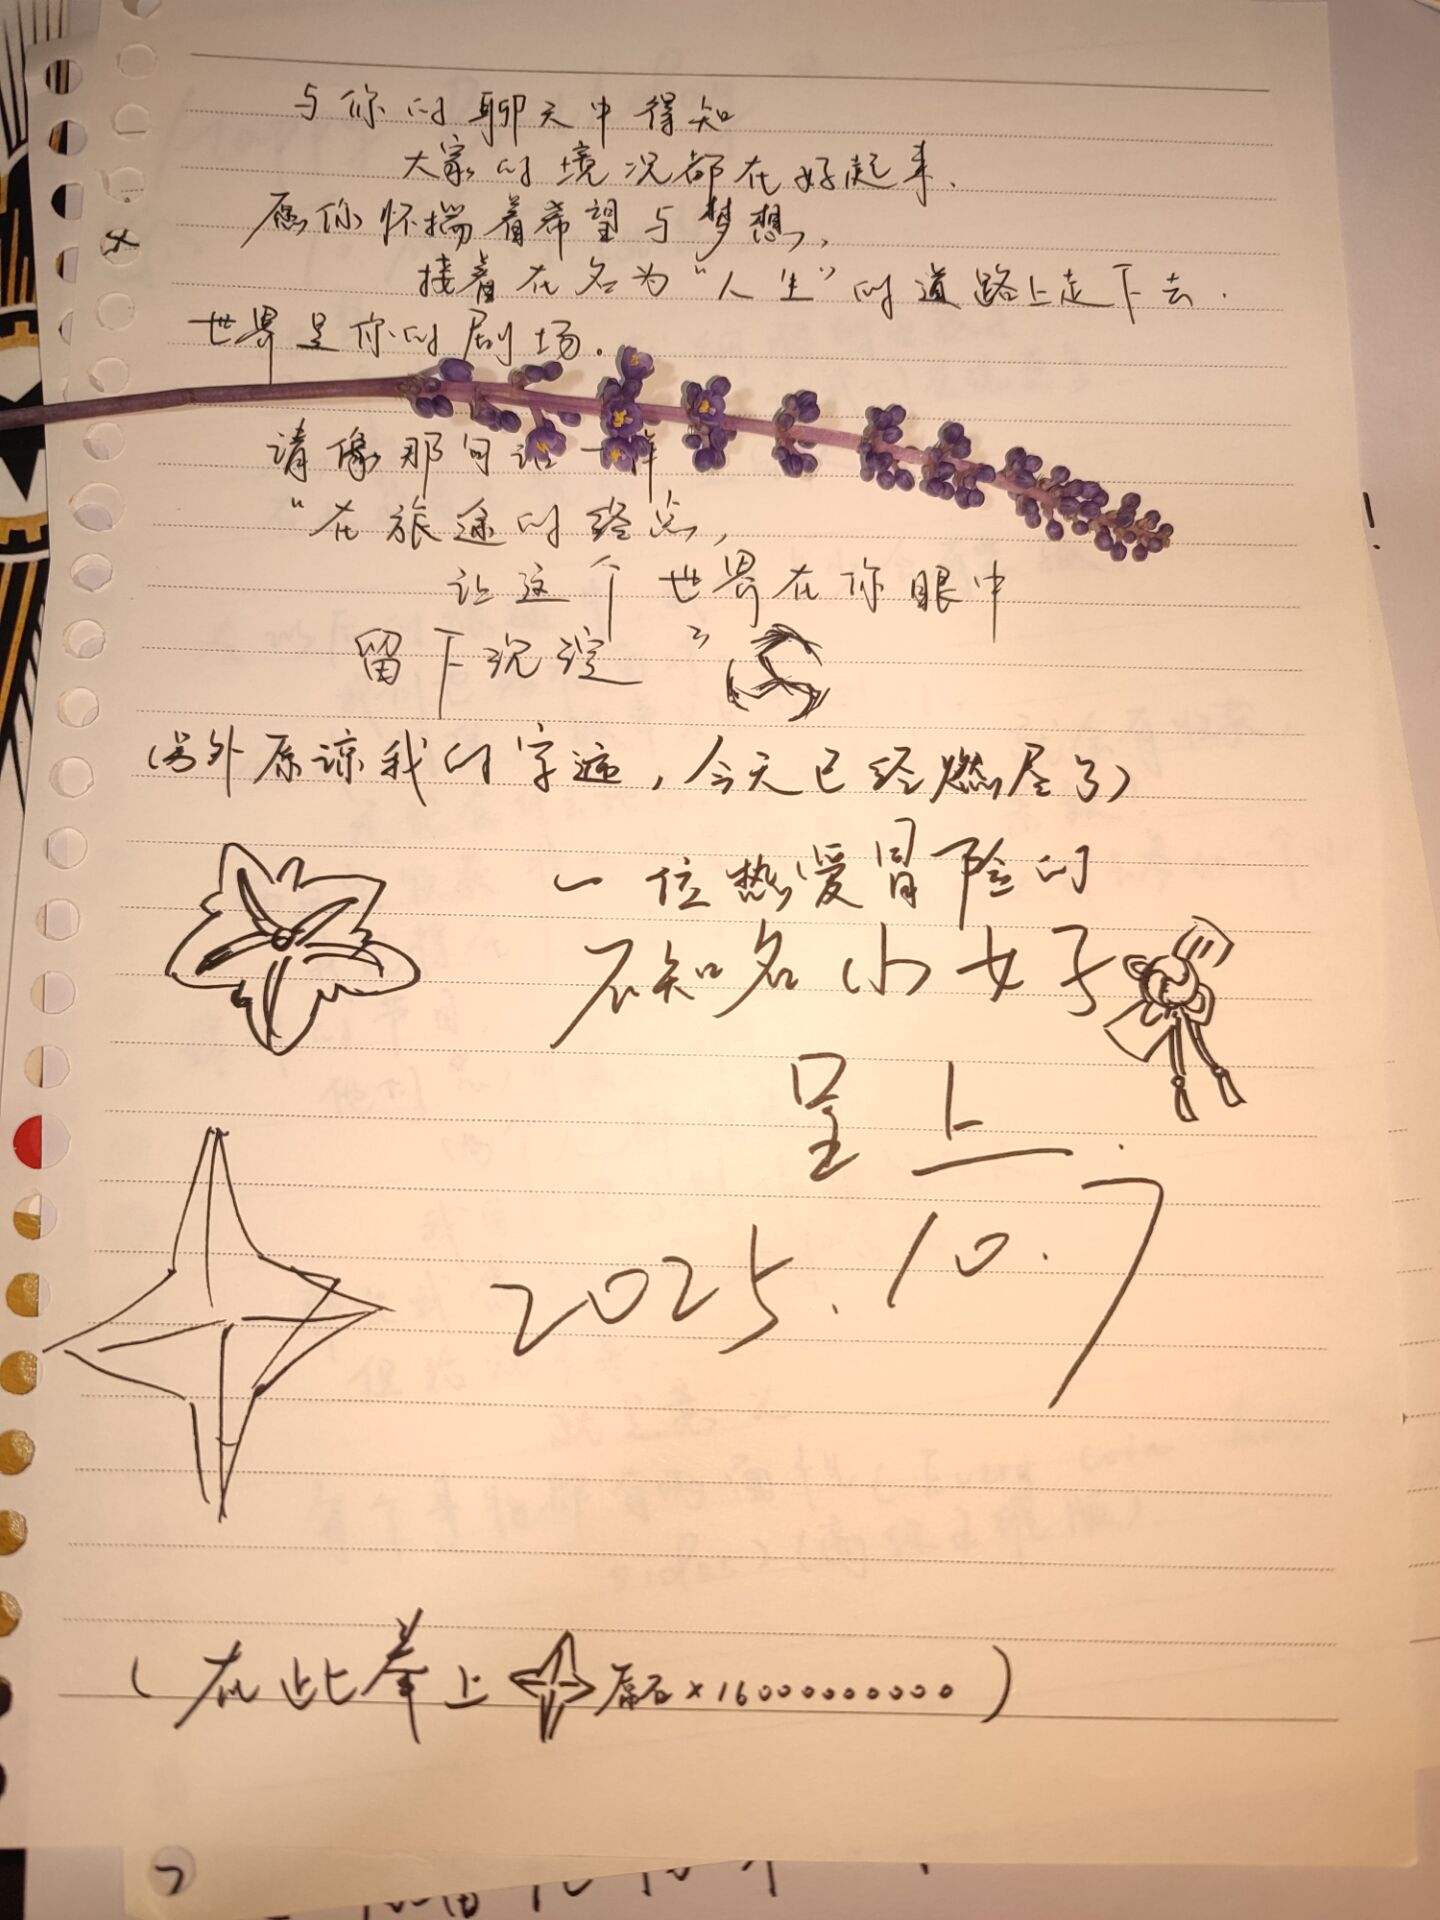 与你的聊天中得知
大家的境况都在好起来.
愿你怀揣着希望与梦想,
接着在名为“人生”的道路上走下去.
世界是你的剧场。
请像那句话一样
“在旅途的终点,
让这个世界在你眼中
留下沉淀”
(另外原谅我的字迹,今天已经燃尽了)
一位热爱冒险的
不知名小女子
呈上.
2025.10.7
(在此奉上 原石×16000000000)